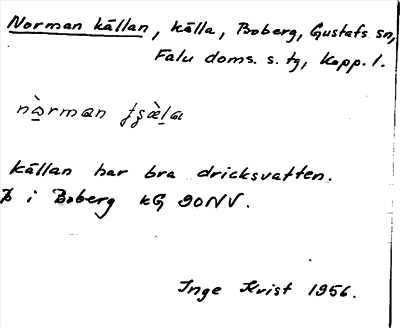 Norman källan, källa, Boberg, Gustafs sn,
Falu doms. s. tg, Kopp. l.
källan har bra dricksvatten.
i Boberg kG 90NV.
Inge Kvist 1956.